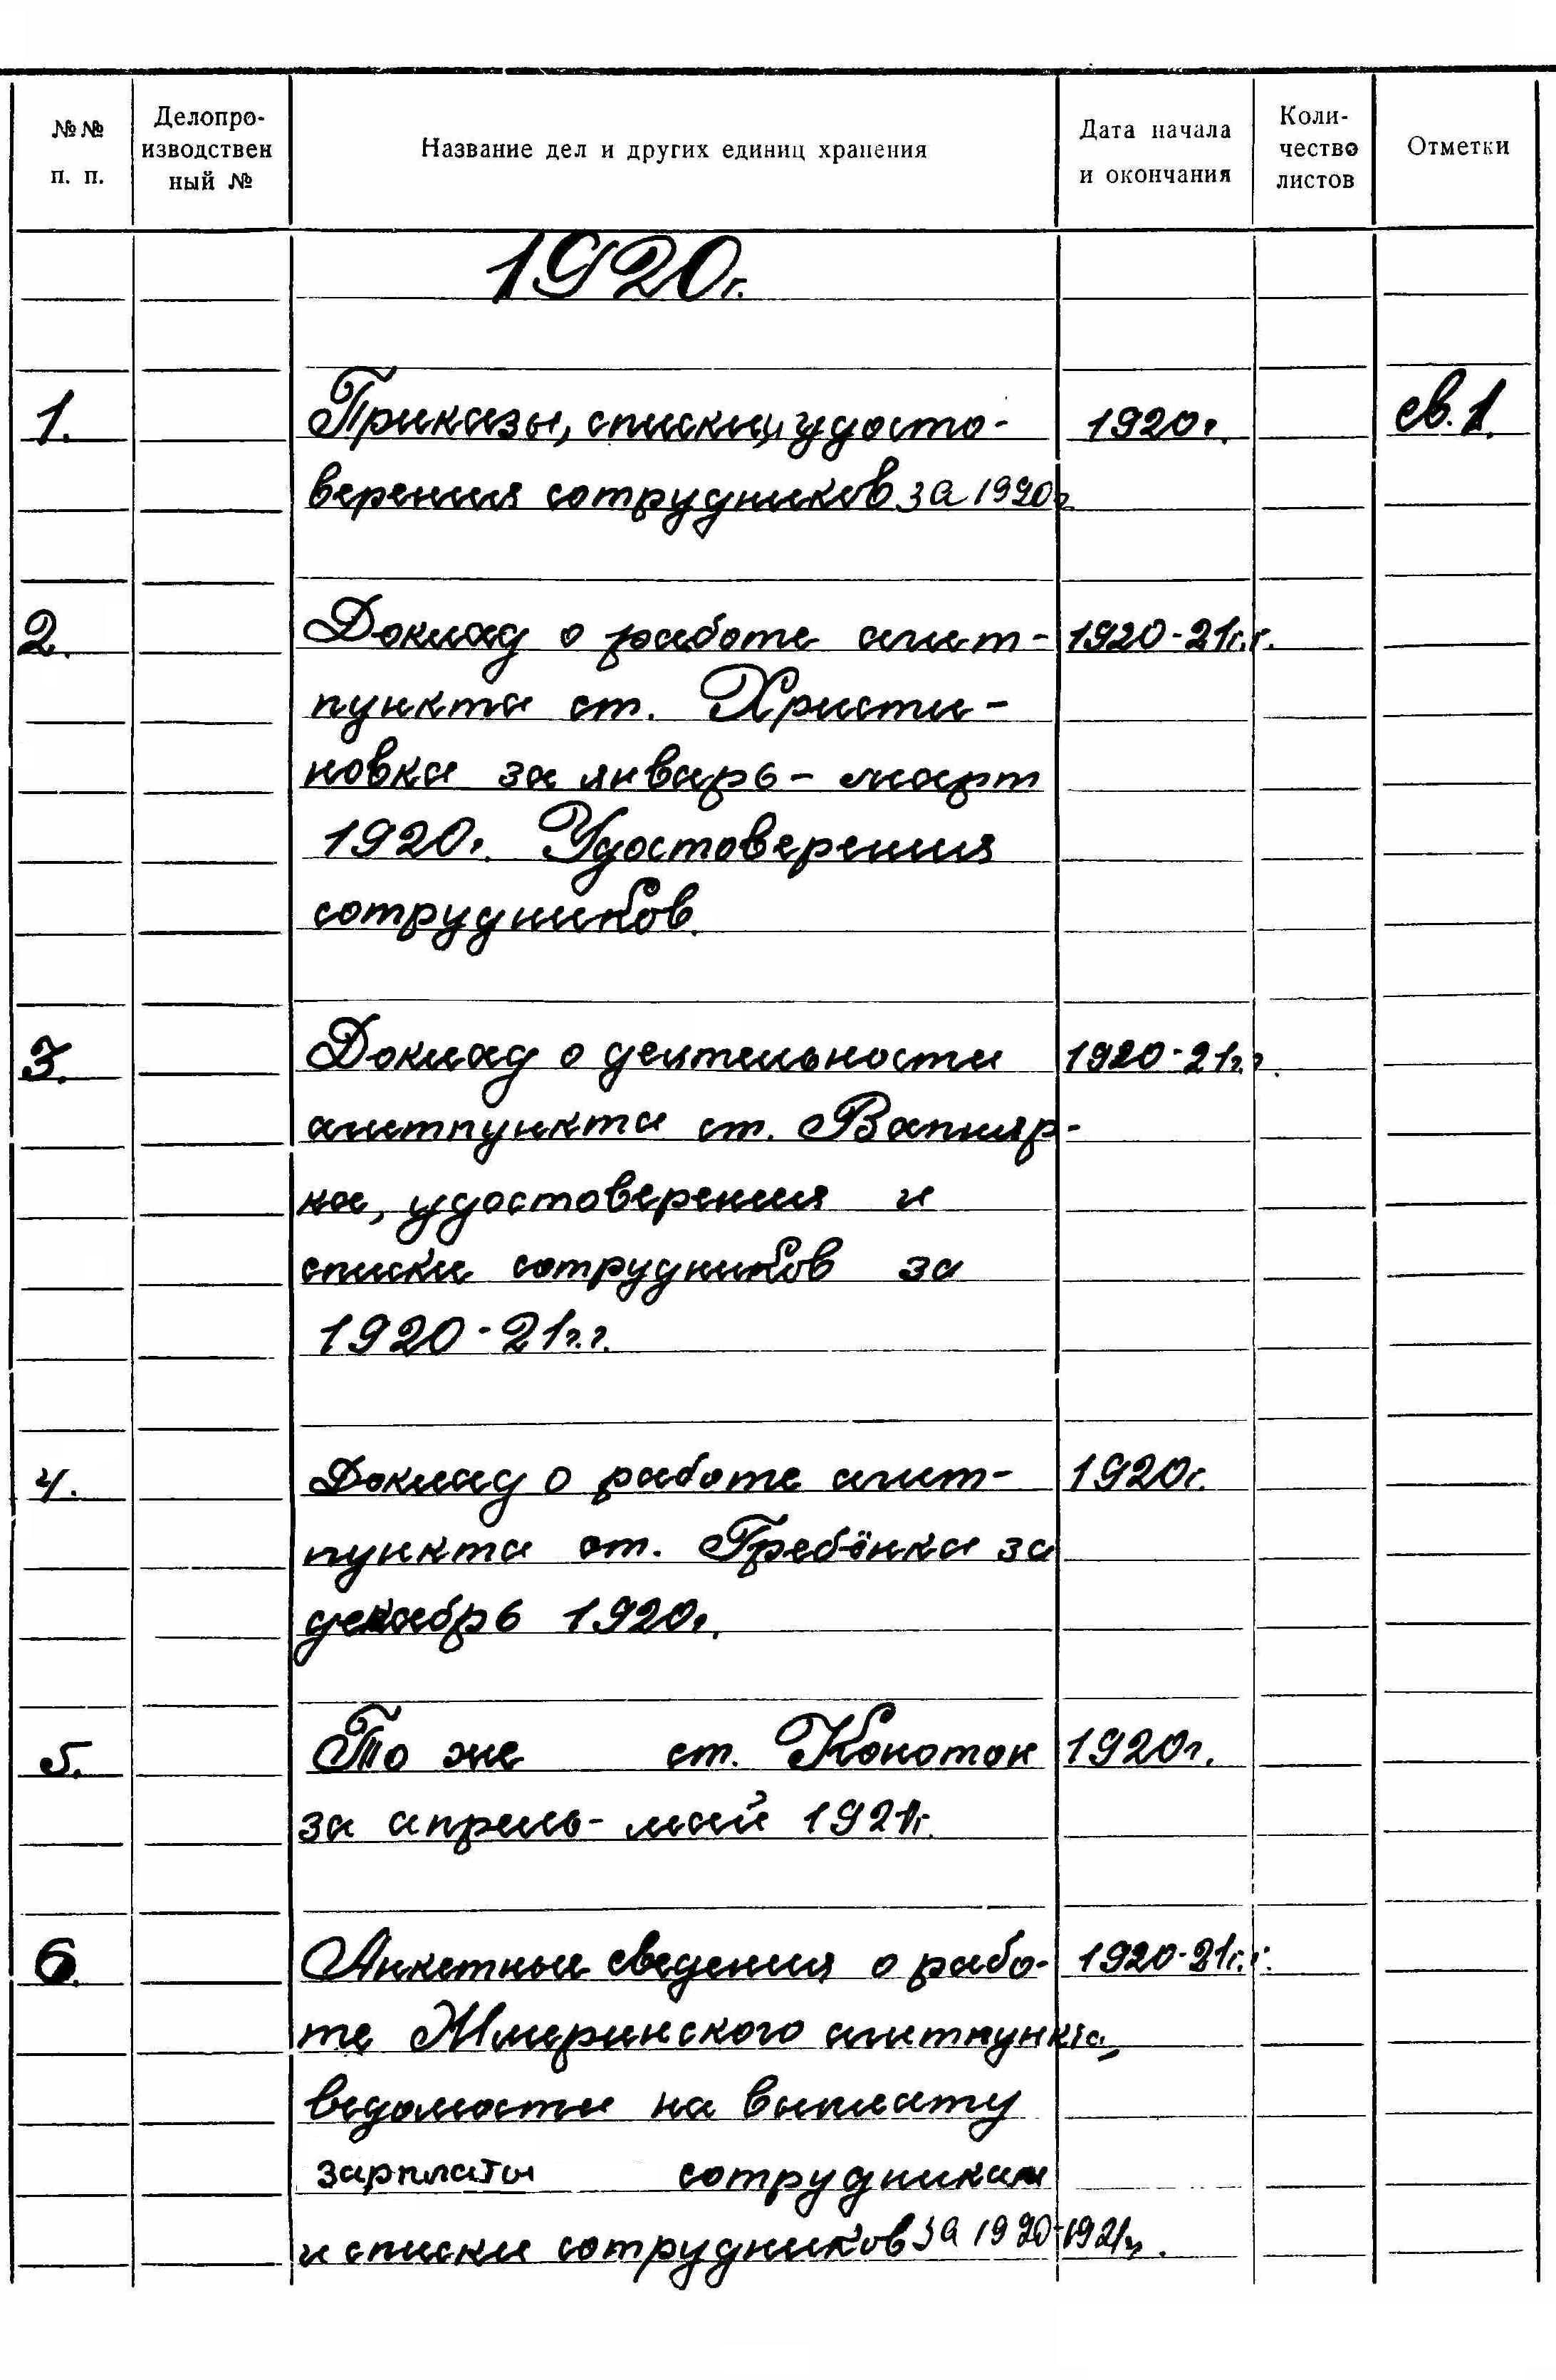 №№ п. п. Делопро-изводствен ный № Название дел и других единиц хранения Дата начала и окончания Коли-чество листов Отметки
1920г.
1. Приказы, списки, удосто- 1920г. св. 1.
верения сотрудников за 1920г
2. Доклад о работе агит- 1920-21г.г.
пункта ст. Христи-
новка за январь - март
1920г. Удостоверения
сотрудников.
3. Доклад о деятельности 1920-21г.г.
агитпункта ст. Вапняр-
ка, удостоверения и
списки сотрудников за
1920-21г.г.
4. Доклад о работе агит- 1920г.
пункта ст. Гребёнка за
декабрь 1920г.
5. То же ст. Конотоп 1920г.
за апрель - май 1921г.
6. Анкетные сведения о рабо- 1920-21г.г.
те Жмеринского агитпункта,
ведомости на выплату
зарплаты сотрудникам
и списки сотрудников за 1920-1921г.